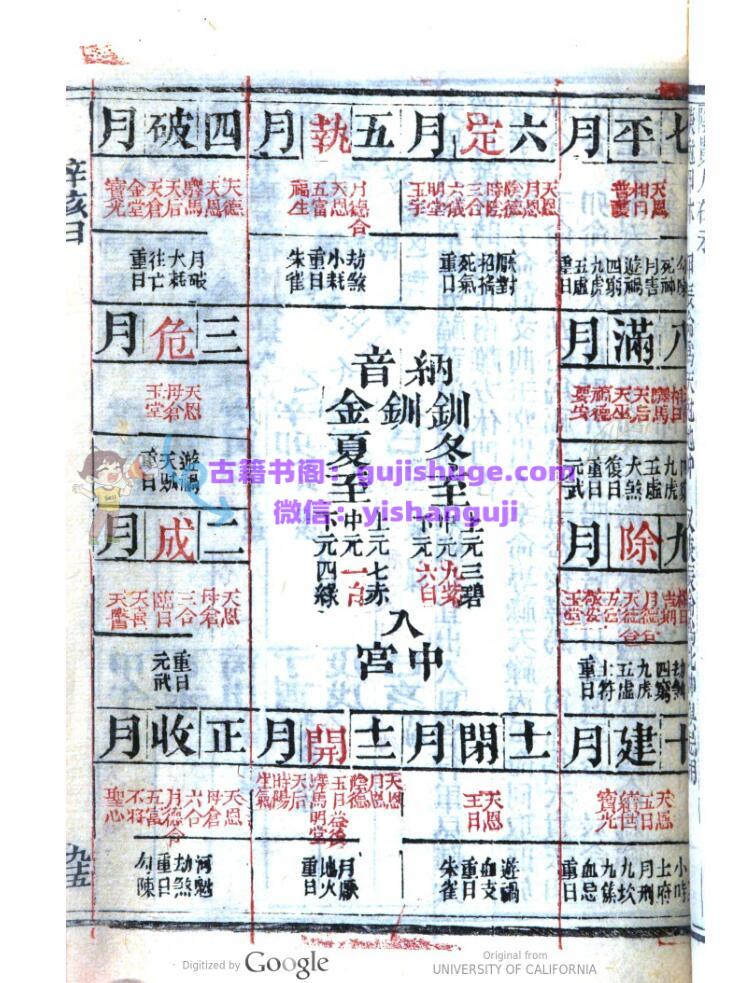 辛亥日
七平月
六定月
五執月
四破月
天恩
相日
普護
月恩
天恩
陰德
時陰
三合
六儀
明堂
玉宇
月德合
天恩
五富
福生
天德
天恩
驛馬
天后
天倉
金堂
寶光
死神
月害
遊禍
四窮
九虎
五虛
重日
厭對
招搖
死氣
重日
劫煞
小耗
重日
朱雀
月破
大耗
往亡
重日
八滿月
三危月
驛馬
天后
天巫
福德
要安
天恩
母倉
玉堂
九虎
五虛
大煞
復日
重日
元武
遊禍
天賊
重日
納音
釧釧金
冬至
上元三碧
中元九紫
下元六白
夏至
上元七赤
中元一白
下元四綠
入中宮
九除月
二成月
天恩
母倉
三合
臨日
天喜
天醫
四窮
九虎
五虛
土符
重日
重日
元武
十建月
十一閉月
十二開月
正收月
天恩
王日
續世
寶光
天恩
王日
天恩
月恩
陰德
王日
驛馬
天后
時陽
生氣
益後
明堂
天恩
母倉
六合
月德合
五富
不將
聖心
小時
土府
月刑
九坎
九焦
血忌
重日
遊禍
血支
重日
朱雀
月厭
地火
重日
河魁
劫煞
重日
勾陳
九十五
古籍书阁：gujishuge.com
微信：yishanguji
Digitized by Google
Original from
UNIVERSITY OF CALIFORNIA